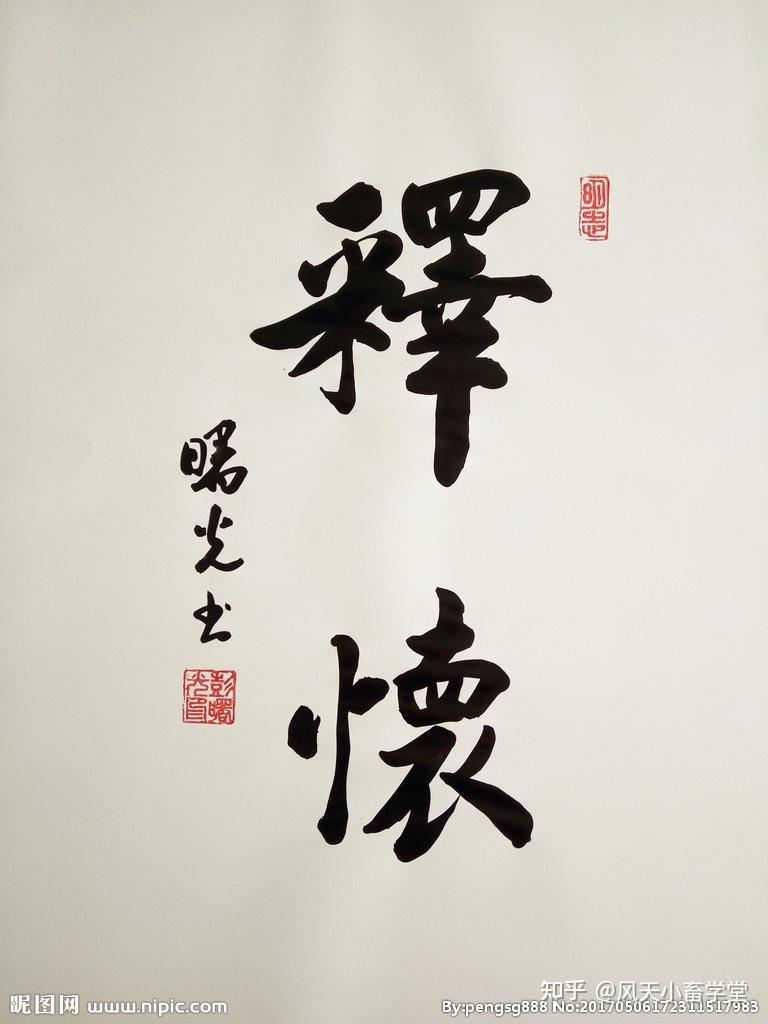 釋懷
明志
曙光书
彭曙光印
知乎 @风天小畜学堂
昵图网 www.nipic.com
By:pengsg888 No:20170506172311517983